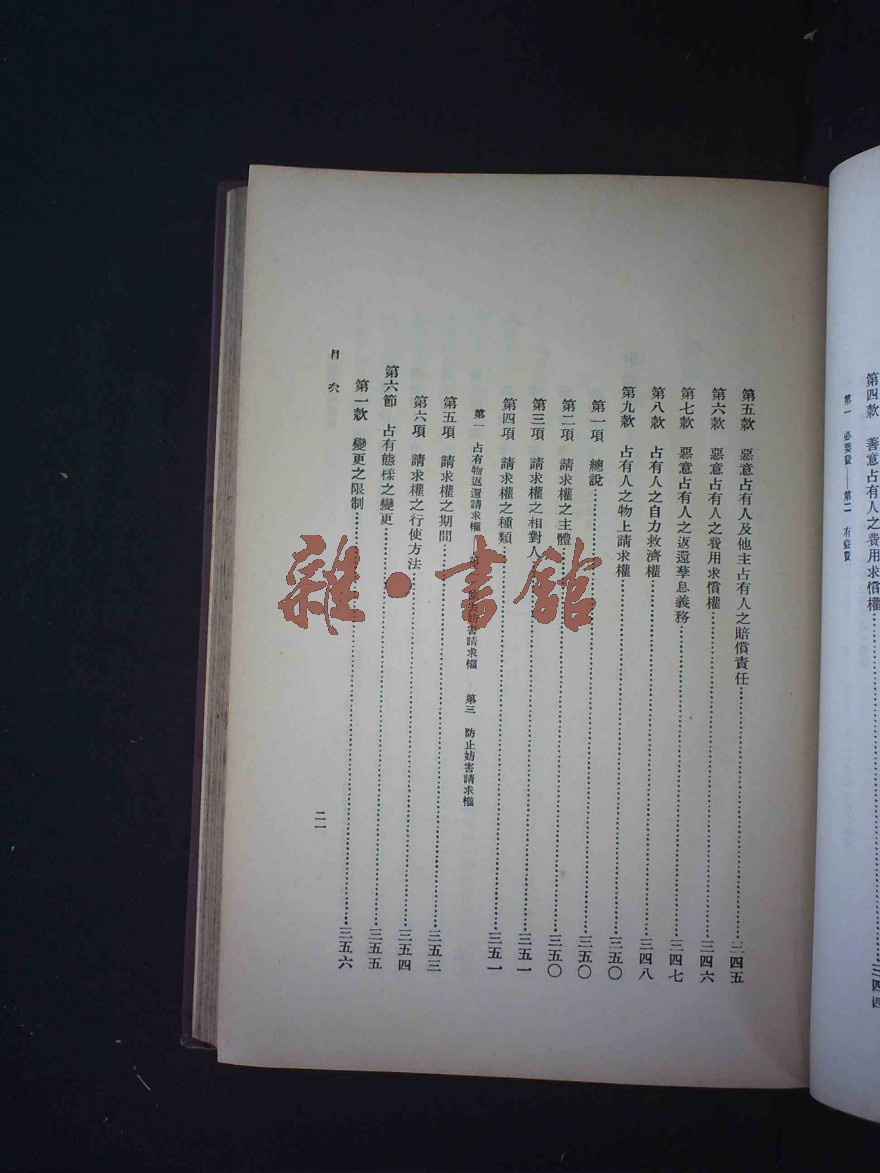 第四款　善意占有人之費用求償權……三四四
第一　必要費——第二　有益費
第五款　惡意占有人及他主占有人之賠償責任……三四五
第六款　惡意占有人之費用求償權……三四六
第七款　惡意占有人之返還孳息義務……三四七
第八款　占有人之自力救濟權……三四八
第九款　占有人之物上請求權……三五〇
第一項　總說……三五〇
第二項　請求權之主體……三五〇
第三項　請求權之相對人……三五一
第四項　請求權之種類……三五一
第一　占有物返還請求權　妨害請求權　第三　防止妨害請求權
第五項　請求權之期間……三五三
第六項　請求權之行使方法……三五四
第六節　占有態樣之變更……三五五
第一款　變更之限制……三五六
目次
二一
雜·書館